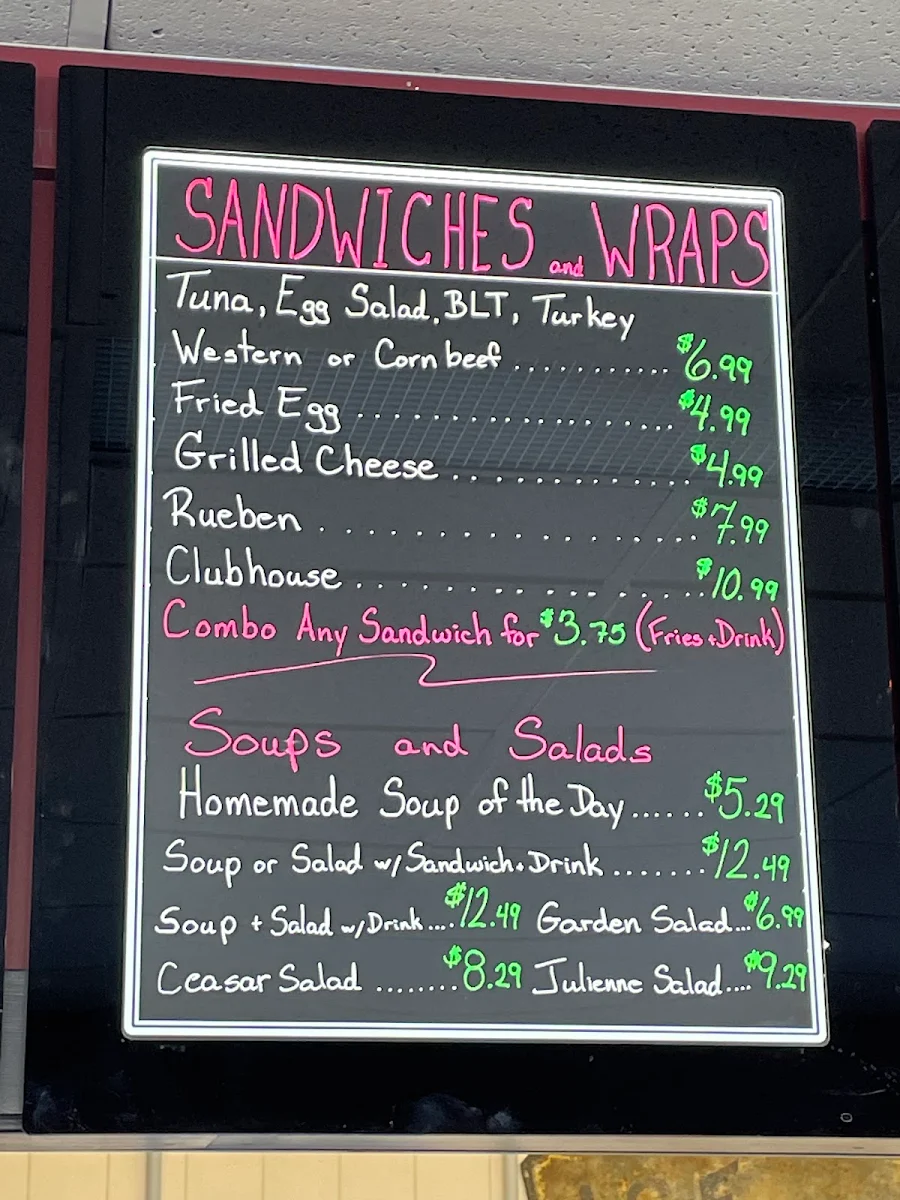 SANDWICHES and WRAPS
Tuna, Egg Salad, BLT, Turkey
Western or Corn beef .......... $6.99
Fried Egg .............. $4.99
Grilled Cheese ............ $4.99
Rueben .............. $7.99
Clubhouse .............. $10.99
Combo Any Sandwich for $3.75 (Fries + Drink)
Soups and Salads
Homemade Soup of the Day...... $5.29
Soup or Salad w/ Sandwich + Drink ....... $12.49
Soup + Salad w/ Drink .... $12.49 Garden Salad... $6.99
Ceasar Salad ........ $8.29 Julienne Salad.... $9.29